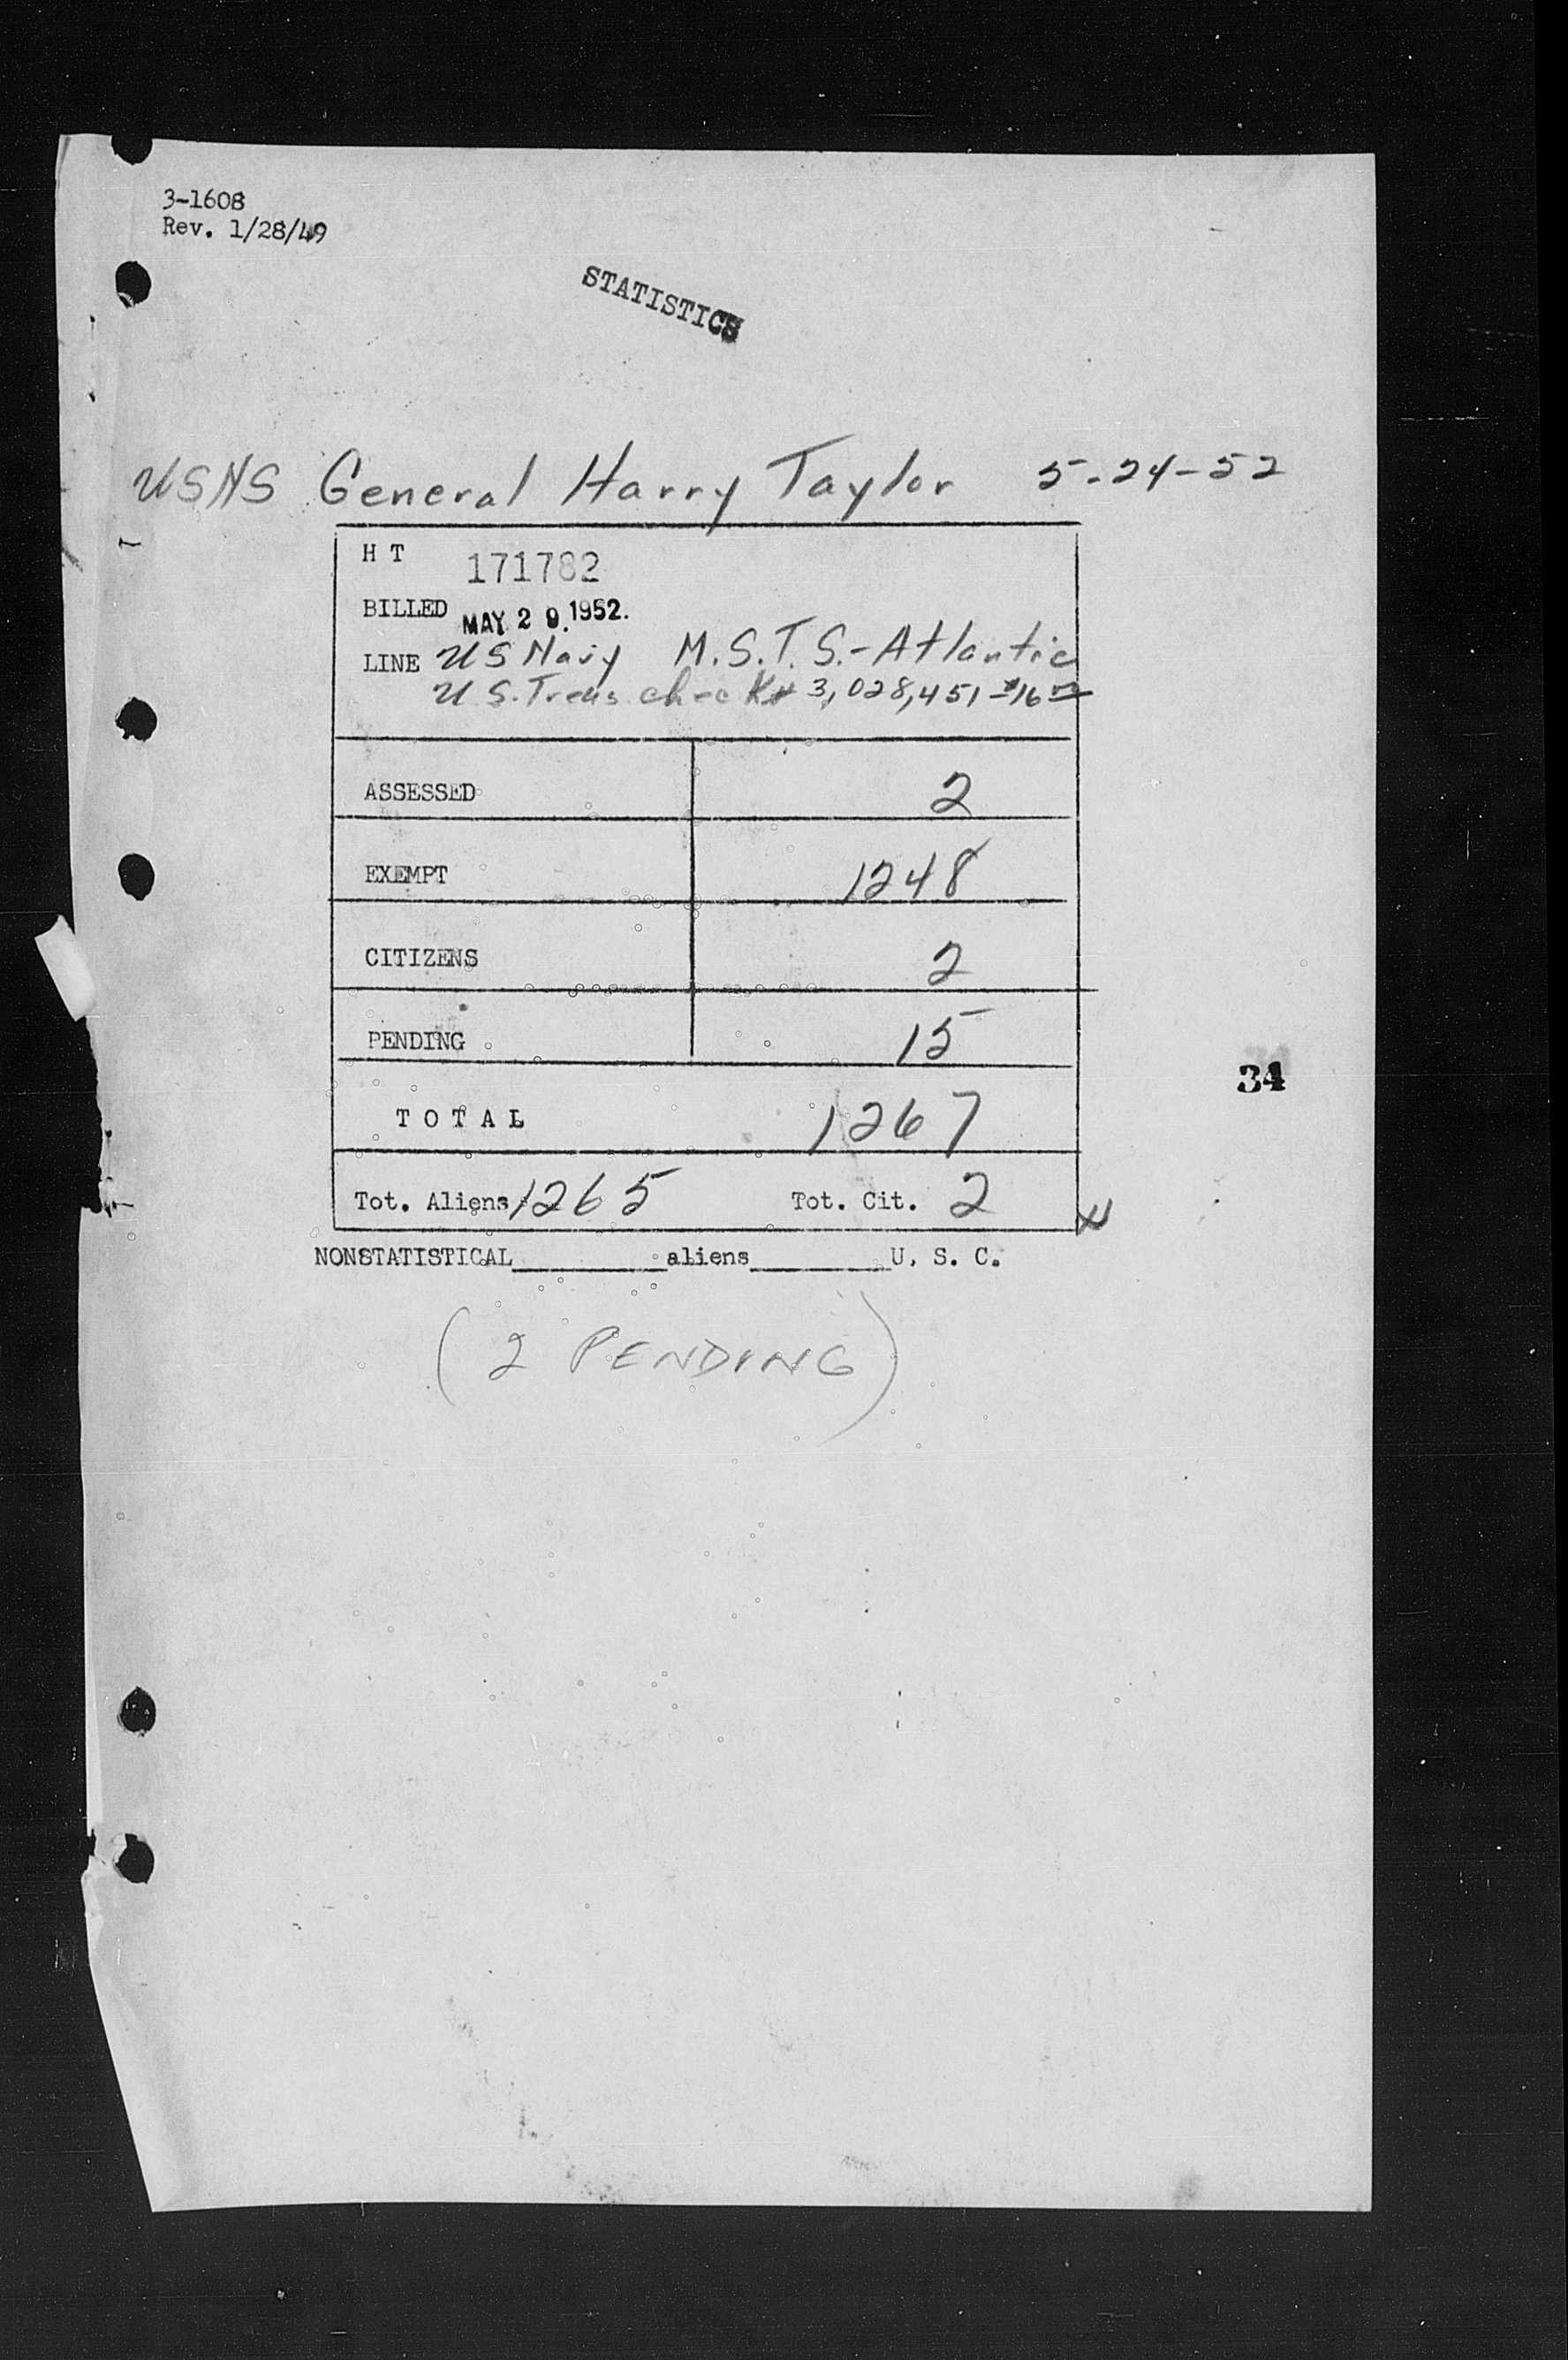 3-1608
Rev. 1/28/49
STATISTICS
USNS General Harry Taylor 5-24-52
H T 171782
BILLED MAY 29 1952.
LINE US Navy M.S.T.S.-Atlantic
U S. Treas check # 3,028,451 - $16
ASSESSED 2
EXEMPT 1248
CITIZENS 2
PENDING 15
34
T O T A L 1267
Tot. Aliens 1265 Tot. Cit. 2
NONSTATISTICAL________aliens________U. S. C.
(2 PENDING)